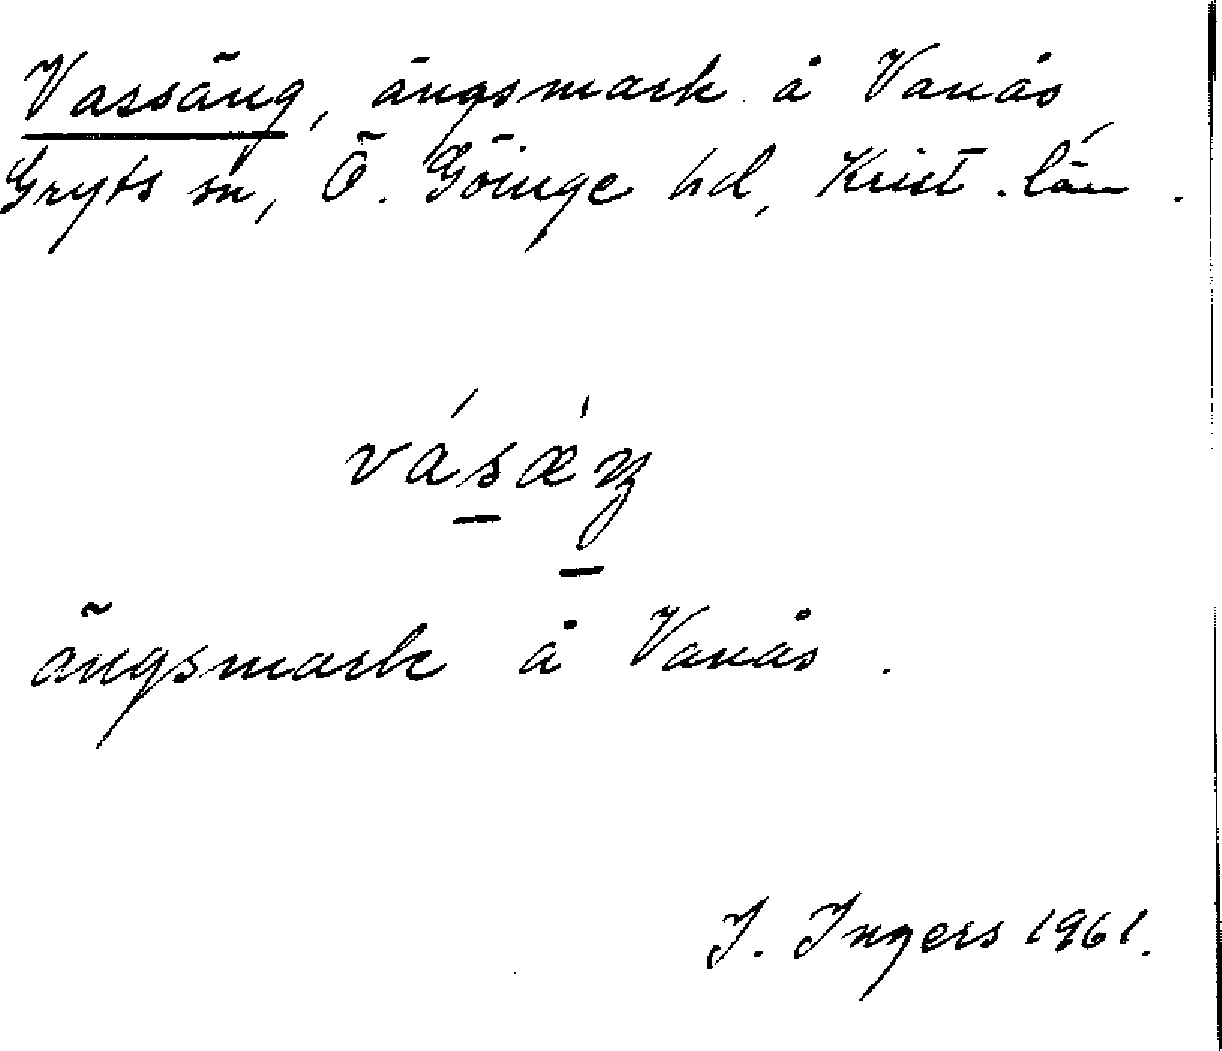 Vassäng, ängsmark å Vanås
Gryts sn, Ö. Göinge hd, Krist. län.
vásǽŋ
ängsmark å Vanås.
I. Ingers 1961.